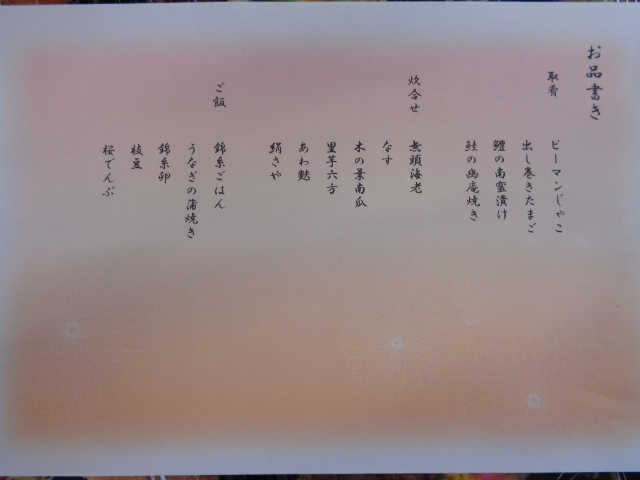 お品書き
取肴
ピーマンじゃこ
出し巻きたまご
鱧の南蛮漬け
鮭の幽庵焼き
炊合せ
無頭海老
なす
木の葉南瓜
里芋六方
あわ麩
絹さや
ご飯
錦糸ごはん
うなぎの蒲焼き
錦糸卵
枝豆
桜でんぶ